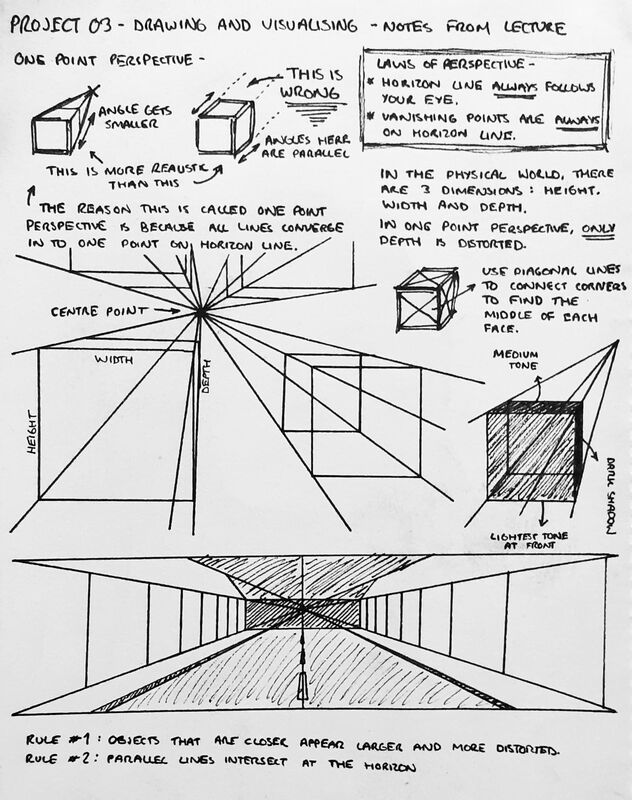 PROJECT 03 - DRAWING AND VISUALISING - NOTES FROM LECTURE
ONE POINT PERSPECTIVE -
ANGLE GETS
SMALLER
THIS IS
WRONG
ANGLES HERE
ARE PARALLEL
THIS IS MORE REALISTIC
THAN THIS
LAWS OF PERSPECTIVE -
* HORIZON LINE ALWAYS FOLLOWS
YOUR EYE.
* VANISHING POINTS ARE ALWAYS
ON HORIZON LINE.
THE REASON THIS IS CALLED ONE POINT
PERSPECTIVE IS BECAUSE ALL LINES CONVERGE
IN TO ONE POINT ON HORIZON LINE.
IN THE PHYSICAL WORLD, THERE
ARE 3 DIMENSIONS: HEIGHT,
WIDTH AND DEPTH.
IN ONE POINT PERSPECTIVE, ONLY
DEPTH IS DISTORTED.
USE DIAGONAL LINES
TO CONNECT CORNERS
TO FIND THE
MIDDLE OF EACH
FACE.
CENTRE POINT
WIDTH
DEPTH
HEIGHT
MEDIUM
TONE
DARK SHADOW
LIGHTEST TONE
AT FRONT
RULE #1: OBJECTS THAT ARE CLOSER APPEAR LARGER AND MORE DISTORTED.
RULE #2: PARALLEL LINES INTERSECT AT THE HORIZON